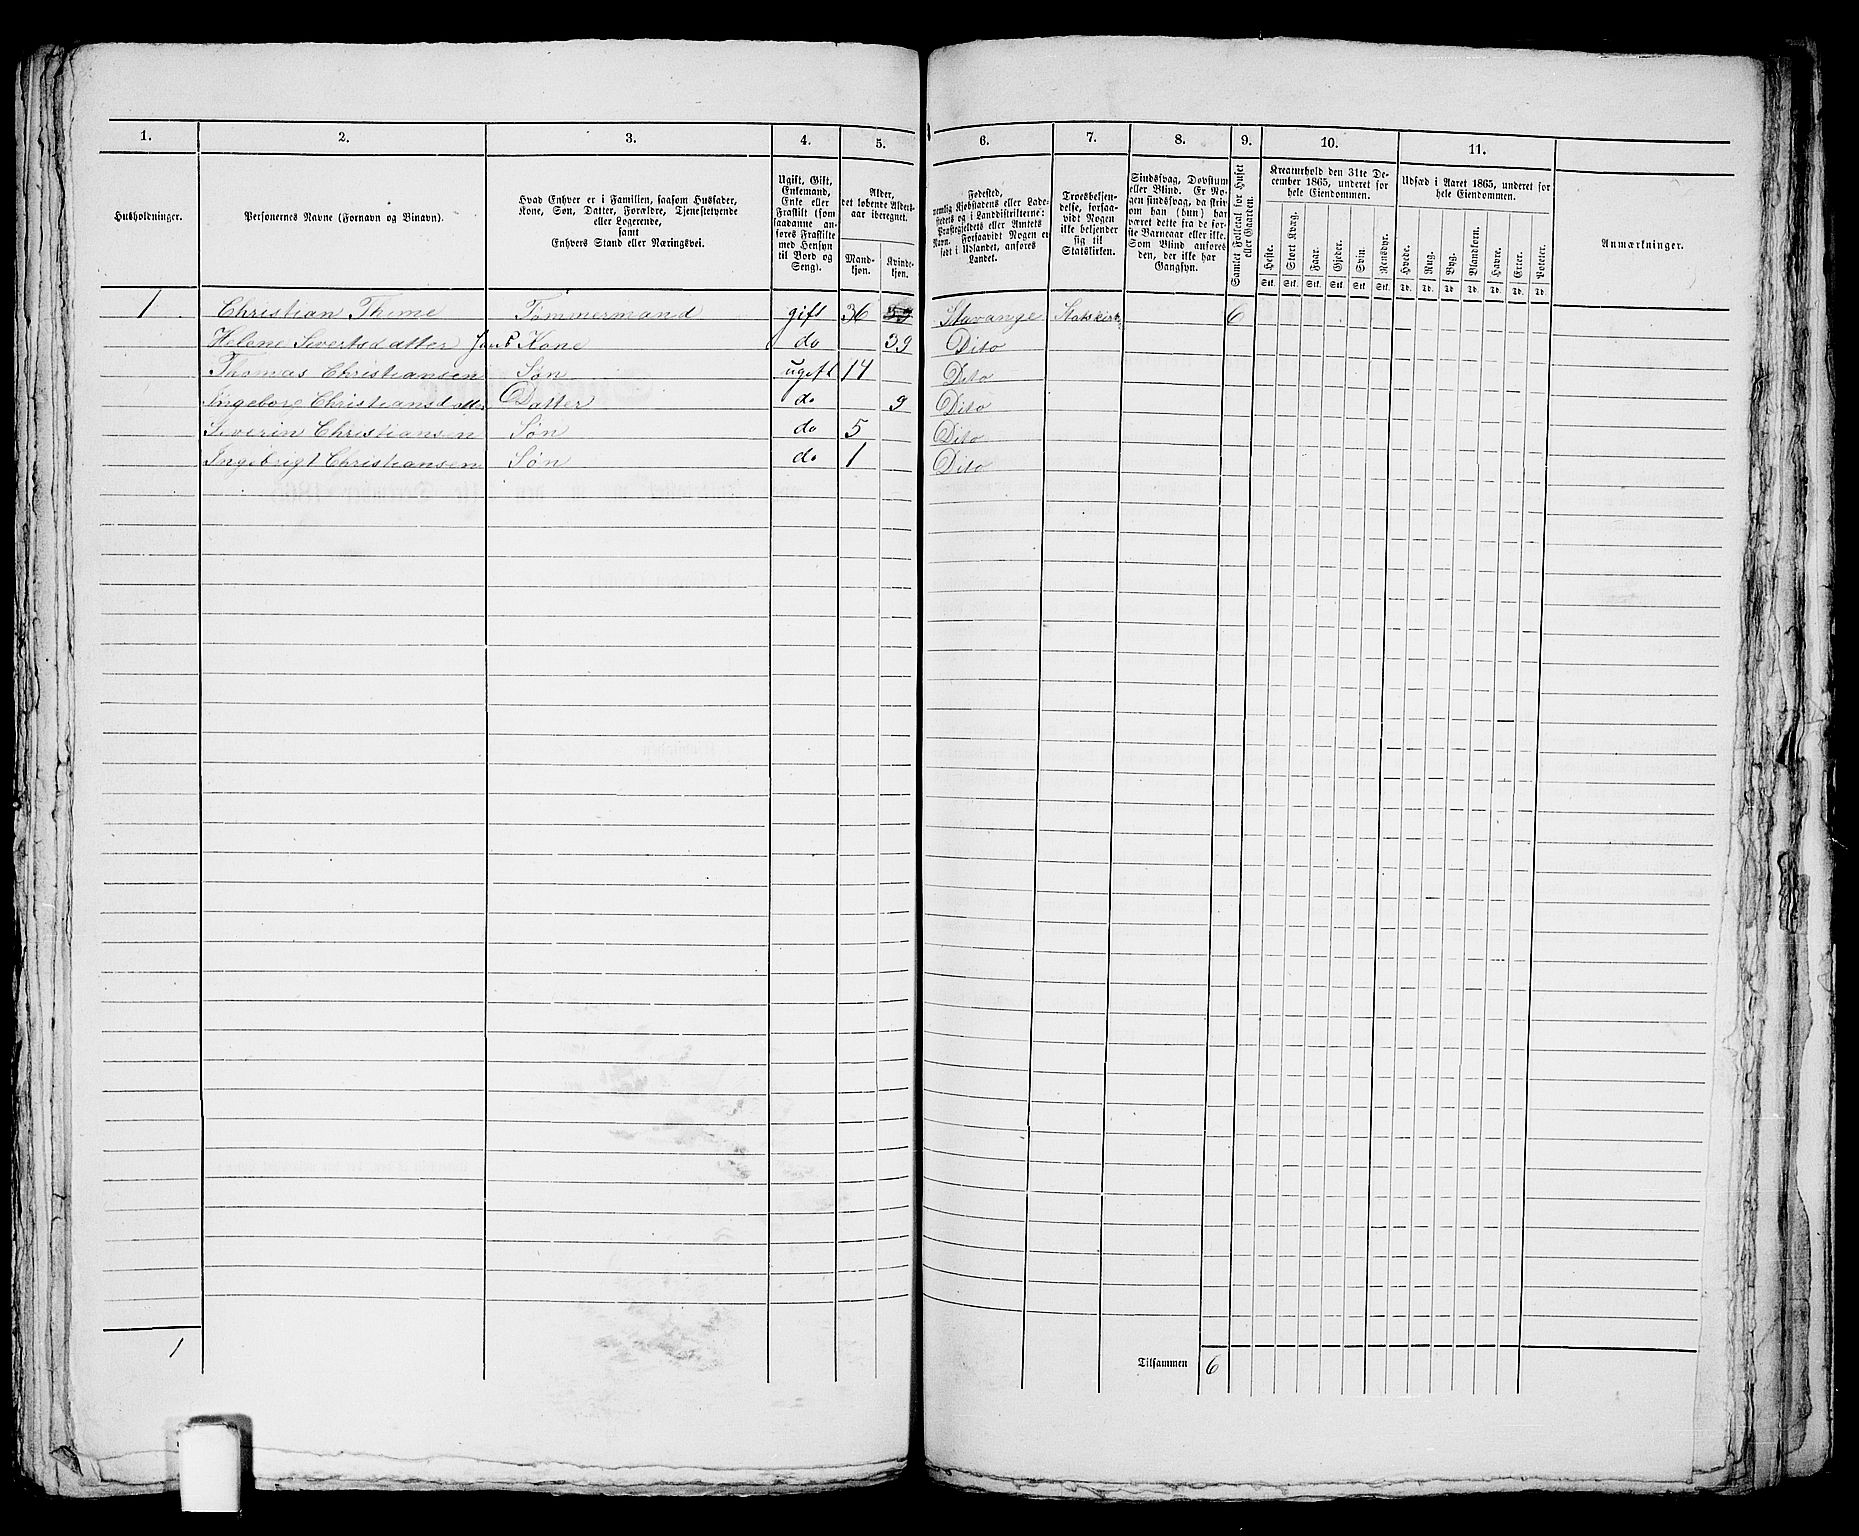 1. 2. 3. 4. 5. 6. 7. 8. 9. 10. 11.
Husholdninger.
Personernes Navne (Fornavn og Binavn).
Hvad Enhver er i Familien, saasom Husfader,
Kone, Søn, Datter, Forældre, Tjenestetyende
eller Logerende,
samt
Enhvers Stand eller Næringsvei.
Ugift, Gift,
Enkemand,
Enke eller
Fraskilt (som
saadanne an-
føres Fraskilte
med Hensyn
til Bord og
Seng).
Alder,
det løbende Alders-
aar iberegnet.
Mand-
kjøn.
Kvinde-
kjøn.
Fødested,
nemlig Kjøbstadens eller Lade-
stedets og i Landdistrikterne:
Præstegjeldets eller Amtets
Navn. Forsaavidt Nogen er
født i Udlandet, anføres
Landet.
Troesbekjen-
delse, forsaa-
vidt Nogen
ikke bekjender
sig til
Statskirken.
Sindssvag, Døvstum
eller Blind. Er No-
gen sindssvag, da skriv
om han (hun) har
været dette fra de før-
ste Barneaar eller ikke.
Som Blind anføres
den, der ikke har
Gangsyn.
Samlet Folketal for Huset
eller Gaarden.
Kreaturhold den 31te De-
cember 1865, underet for
hele Eiendommen.
Heste. Stort Kvæg. Faar. Gjeder. Svin. Rensdyr.
Stk. Stk. Stk. Stk. Stk. Stk.
Udsæd i Aaret 1865, underet for
hele Eiendommen.
Hvede. Rug. Byg. Blandkorn. Havre. Erter. Poteter.
Td. Td. Td. Td. Td. Td. Td.
Anmærkninger.
1 Christian Thime Tømmermand gift 36 Stavanger Statskirk 6
Helene Sivertsdatter Kone do 39 Dito
Thomas Christiansen Søn ugift 14 Dito
Ingeborg Christiansdatter Datter do 9 Dito
Severin Christiansen Søn do 5 Dito
Ingebrigt Christiansen Søn do 1 Dito
1 Tilsammen 6